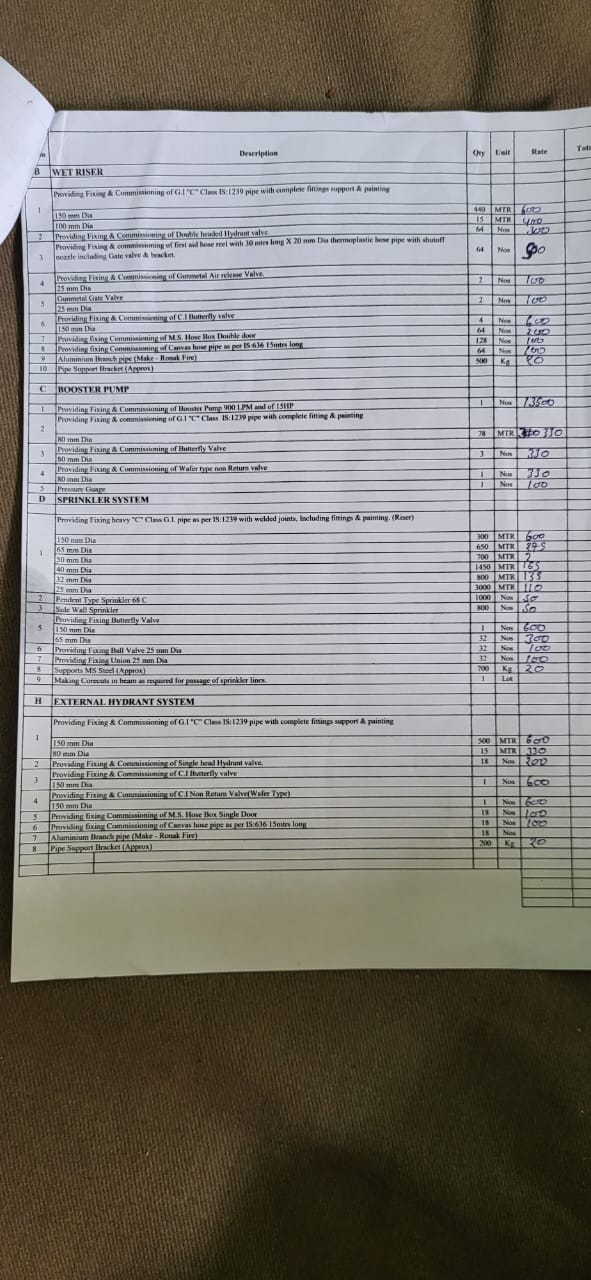 Description Qty Unit Rate
B WET RISER
Providing Fixing & Commissioning of G.I "C" Class IS:1239 pipe with complete fittings support & painting
1
150 mm Dia 440 MTR 600
100 mm Dia 15 MTR 400
2 Providing Fixing & Commissioning of Double headed Hydrant valve. 64 Nos 300
3 Providing Fixing & commissioning of first aid hose reel with 30 mtrs long X 20 mm Dia thermoplastic hose pipe with shutoff
nozzle including Gate valve & bracket. 64 Nos
4 Providing Fixing & Commissioning of Gunmetal Air release Valve.
25 mm Dia 2 Nos 100
5 Gunmetal Gate Valve
25 mm Dia 2 Nos 100
6 Providing Fixing & Commissioning of C.I Butterfly valve
150 mm Dia 4 Nos 600
7 Providing fixing Commissioning of M.S. Hose Box Double door 64 Nos 200
8 Providing fixing Commissioning of Canvas hose pipe as per IS:636 15mtrs long 128 Nos 100
9 Aluminium Branch pipe (Make - Ronak Fire) 64 Nos 100
10 Pipe Support Bracket (Approx) 500 Kg 20
C BOOSTER PUMP
1 Providing Fixing & Commissioning of Booster Pump 900 LPM and of 15HP 1 Nos 13500
2 Providing Fixing & commissioning of G.I "C" Class IS:1239 pipe with complete fitting & painting
80 mm Dia 78 MTR 330
3 Providing Fixing & Commissioning of Butterfly Valve
80 mm Dia 3 Nos 330
4 Providing Fixing & Commissioning of Wafer type non Return valve
80 mm Dia 1 Nos 330
5 Pressure Guage 1 Nos 100
D SPRINKLER SYSTEM
Providing Fixing heavy "C" Class G.I. pipe as per IS:1239 with welded joints, Including fittings & painting. (Riser)
1
150 mm Dia 300 MTR 600
65 mm Dia 650 MTR 275
50 mm Dia 700 MTR
40 mm Dia 1450 MTR 165
32 mm Dia 800 MTR 135
25 mm Dia 3000 MTR 110
2 Pendent Type Sprinkler 68 C 1000 Nos 50
3 Side Wall Sprinkler 800 Nos 50
5 Providing Fixing Butterfly Valve
150 mm Dia 1 Nos 600
65 mm Dia 32 Nos 300
6 Providing Fixing Ball Valve 25 mm Dia 32 Nos 100
7 Providing Fixing Union 25 mm Dia 32 Nos 100
8 Supports MS Steel (Approx) 700 Kg 20
9 Making Corecuts in beam as required for passage of sprinkler lines. 1 Lot
H EXTERNAL HYDRANT SYSTEM
Providing Fixing & Commissioning of G.I "C" Class IS:1239 pipe with complete fittings support & painting
1
150 mm Dia 500 MTR 600
80 mm Dia 15 MTR 330
2 Providing Fixing & Commissioning of Single head Hydrant valve. 18 Nos 200
3 Providing Fixing & Commissioning of C.I Butterfly valve
150 mm Dia 1 Nos 600
4 Providing Fixing & Commissioning of C.I Non Return Valve(Wafer Type)
150 mm Dia 1 Nos 600
5 Providing fixing Commissioning of M.S. Hose Box Single Door 18 Nos 100
6 Providing fixing Commissioning of Canvas hose pipe as per IS:636 15mtrs long 18 Nos 100
7 Aluminium Branch pipe (Make - Ronak Fire) 18 Nos
8 Pipe Support Bracket (Approx) 200 Kg 20